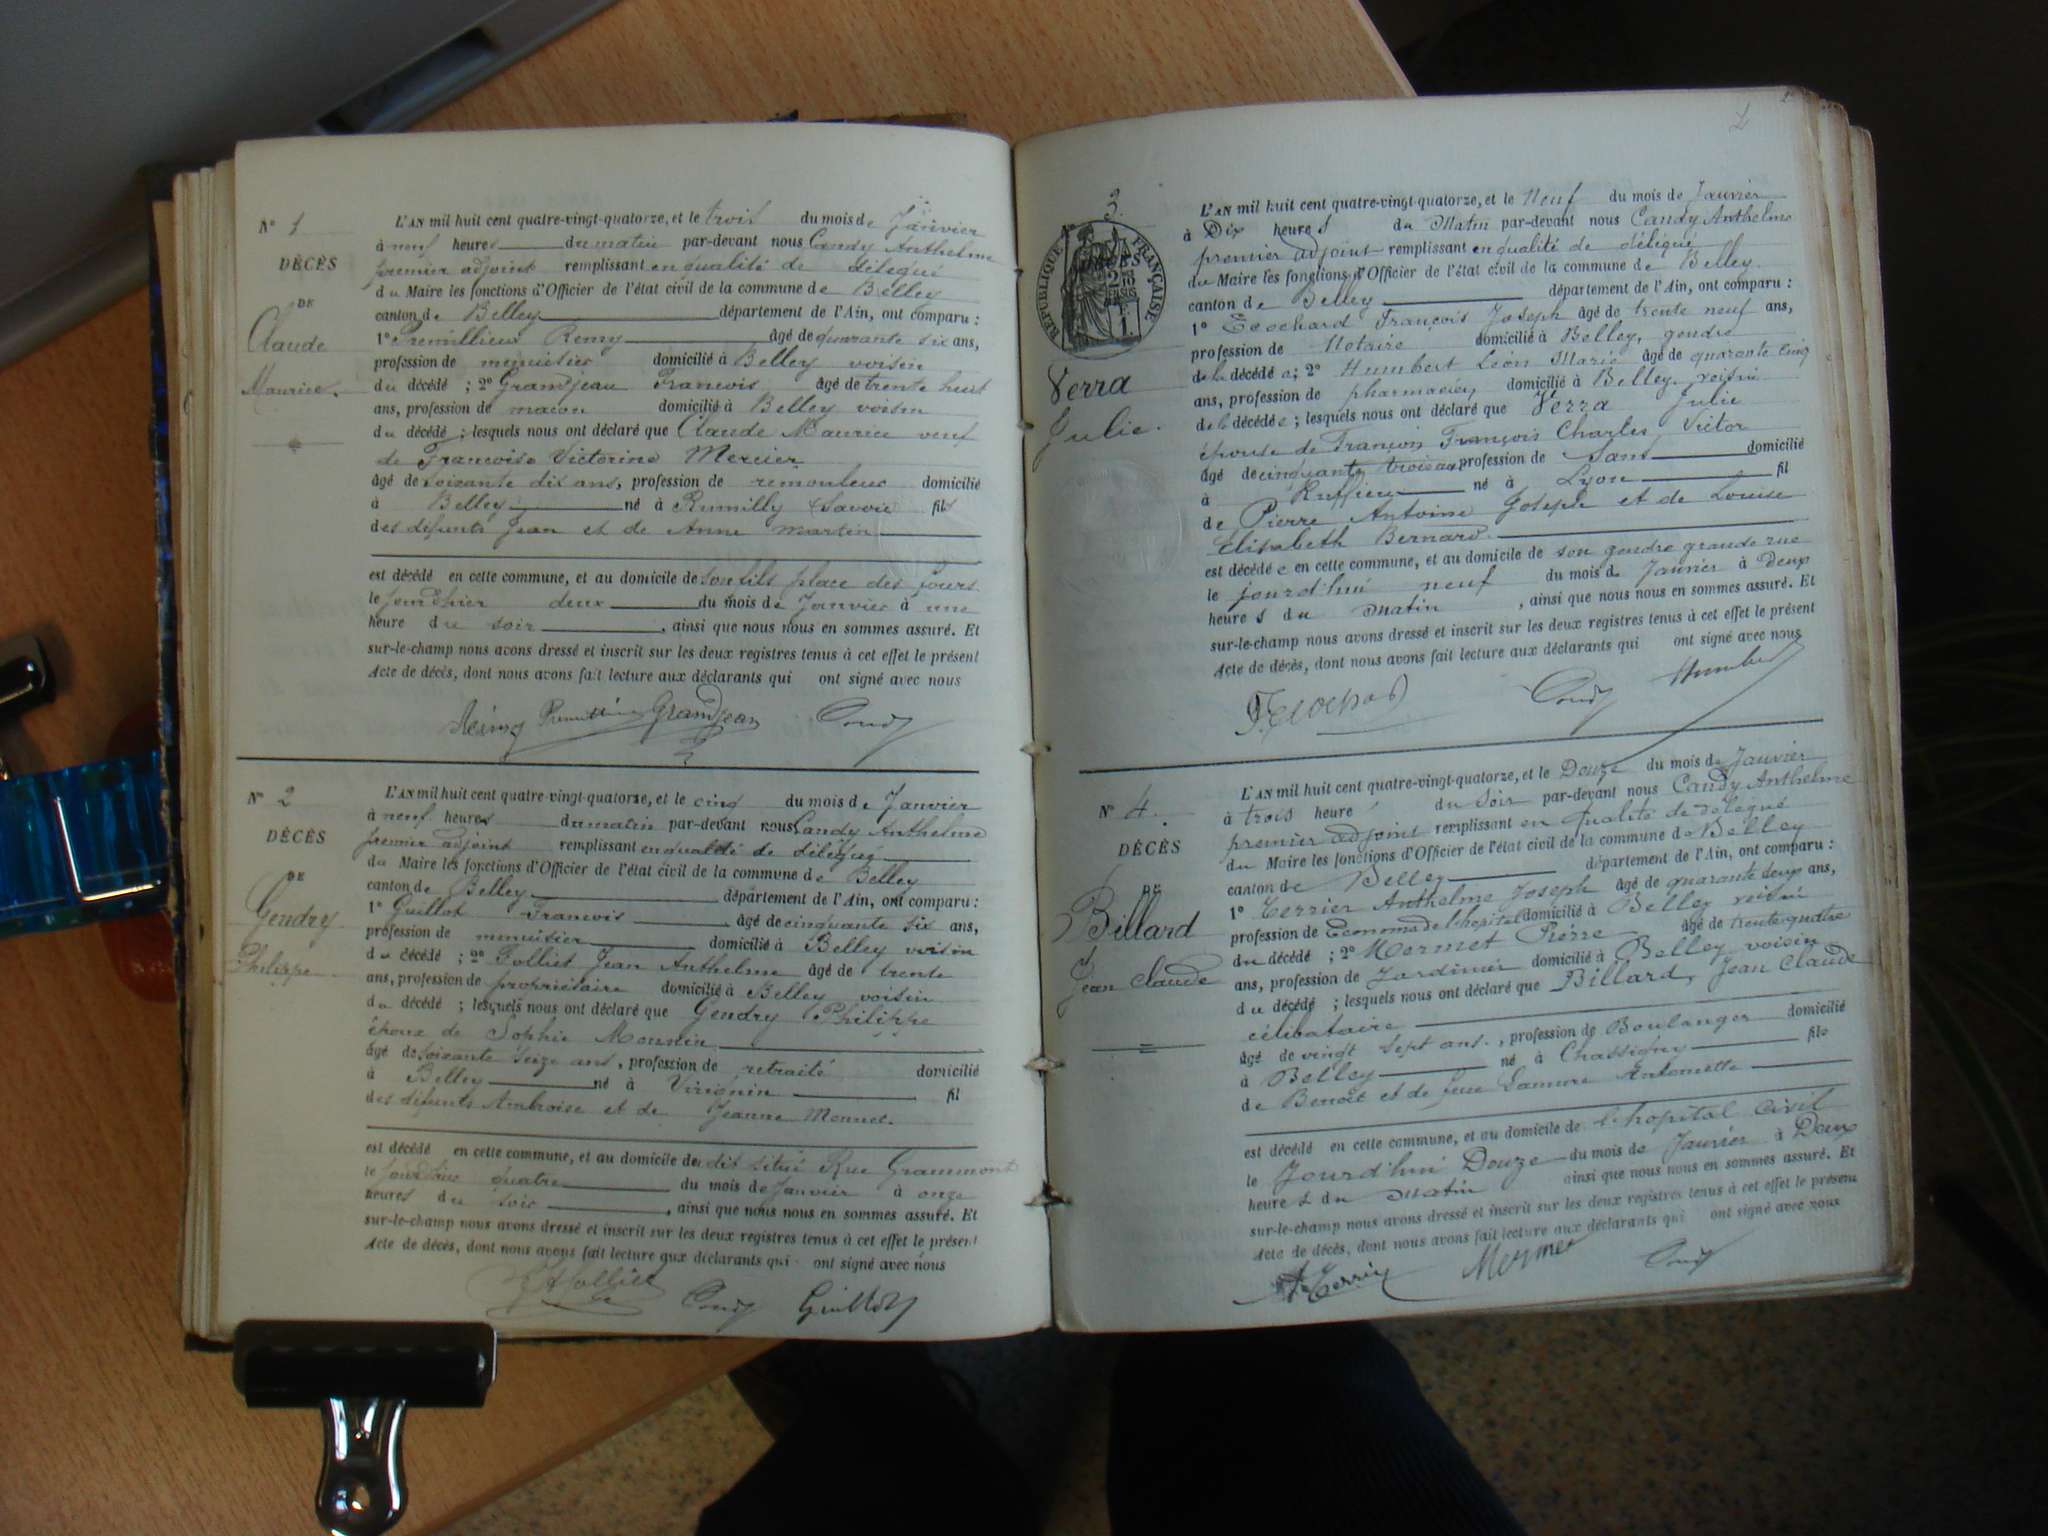 N° 1
DÉCÈS
DE
Claude
Maurice.
L'AN mil huit cent quatre-vingt-quatorze, et le trois du mois de Janvier
à neuf heures du matin par-devant nous Candy Anthelme
premier adjoint remplissant en qualité de délégué
du Maire les fonctions d'Officier de l'état civil de la commune de Belley
canton de Belley département de l'Ain, ont comparu :
1° Premillieux Remy âgé de quarante six ans,
profession de menuisier domicilié à Belley voisin
du décédé ; 2° Grandjean François âgé de trente huit
ans, profession de maçon domicilié à Belley voisin
du décédé ; lesquels nous ont déclaré que Claude Maurice veuf
de Françoise Victorine Mercier
âgé de soixante dix ans, profession de remouleur domicilié
à Belley né à Rumilly Savoie fils
des défunts Jean et de Anne Martin
est décédé en cette commune, et au domicile de son fils place des fours
le jour d'hier deux du mois de Janvier à une
heure du soir, ainsi que nous nous en sommes assuré. Et
sur-le-champ nous avons dressé et inscrit sur les deux registres tenus à cet effet le présent
Acte de décès, dont nous avons fait lecture aux déclarants qui ont signé avec nous
Grandjean Candy
N° 2
DÉCÈS
DE
Gendry
Philippe
L'AN mil huit cent quatre-vingt-quatorze, et le cinq du mois de Janvier
à neuf heures du matin par-devant nous Candy Anthelme
premier adjoint remplissant en qualité de délégué
du Maire les fonctions d'Officier de l'état civil de la commune de Belley
canton de Belley département de l'Ain, ont comparu :
1° Guillot François âgé de cinquante six ans,
profession de menuisier domicilié à Belley voisin
du décédé ; 2° Folliet Jean Anthelme âgé de trente
ans, profession de propriétaire domicilié à Belley voisin
du décédé ; lesquels nous ont déclaré que Gendry Philippe
époux de Sophie Monnin
âgé de soixante seize ans, profession de retraité domicilié
à Belley né à Virignin fil
des défunts Ambroise et de Jeanne Monnet.
est décédé en cette commune, et au domicile de dit situé Rue Grammont
le jour d'hier quatre du mois de Janvier à onze
heures du soir, ainsi que nous nous en sommes assuré. Et
sur-le-champ nous avons dressé et inscrit sur les deux registres tenus à cet effet le présent
Acte de décès, dont nous avons fait lecture aux déclarants qui ont signé avec nous
Folliet Candy Guillot
3.
RÉPUBLIQUE FRANÇAISE
Verra
Julie.
L'AN mil huit cent quatre-vingt-quatorze, et le Neuf du mois de Janvier
à Dix heures du Matin par-devant nous Candy Anthelme
premier adjoint remplissant en qualité de délégué
du Maire les fonctions d'Officier de l'état civil de la commune de Belley
canton de Belley département de l'Ain, ont comparu :
1° Ecochard François Joseph âgé de trente neuf ans,
profession de Notaire domicilié à Belley, gendre
de la décédée ; 2° Humbert Léon Marie âgé de quarante cinq
ans, profession de pharmacien domicilié à Belley voisin
de la décédée ; lesquels nous ont déclaré que Verra Julie
épouse de Francois François Charles Victor
âgé de cinquante trois ans profession de Sans domicilié
à Ruffieu né à Lyon fil
de Pierre Antoine Joseph et de Louise
Elisabeth Bernard.
est décédée en cette commune, et au domicile de son gendre grande rue
le jourd'hui neuf du mois de Janvier à Deux
heures du Matin, ainsi que nous nous en sommes assuré. Et
sur-le-champ nous avons dressé et inscrit sur les deux registres tenus à cet effet le présent
Acte de décès, dont nous avons fait lecture aux déclarants qui ont signé avec nous
F. Ecochard Candy Humbert
N° 4.
DÉCÈS
DE
Billard
Jean Claude
L'AN mil huit cent quatre-vingt-quatorze, et le Douze du mois de Janvier
à trois heure du Soir par-devant nous Candy Anthelme
premier adjoint remplissant en qualité de délégué
du Maire les fonctions d'Officier de l'état civil de la commune de Belley
canton de Belley département de l'Ain, ont comparu :
1° Terrier Anthelme Joseph âgé de quarante deux ans,
profession de Econome de l'hopital domicilié à Belley voisin
du décédé ; 2° Mermet Pierre âgé de trente quatre
ans, profession de Jardinier domicilié à Belley voisin
du décédé ; lesquels nous ont déclaré que Billard, Jean Claude
célibataire
âgé de vingt sept ans, profession de Boulanger domicilié
à Belley né à Chassigny fils
de Benoît et de feue Lamure Antoinette
est décédé en cette commune, et au domicile de l'hopital civil
le Jourd'hui Douze du mois de Janvier à Deux
heures du Matin ainsi que nous nous en sommes assuré. Et
sur-le-champ nous avons dressé et inscrit sur les deux registres tenus à cet effet le présent
Acte de décès, dont nous avons fait lecture aux déclarants qui ont signé avec nous
A. Terrier Mermet Candy